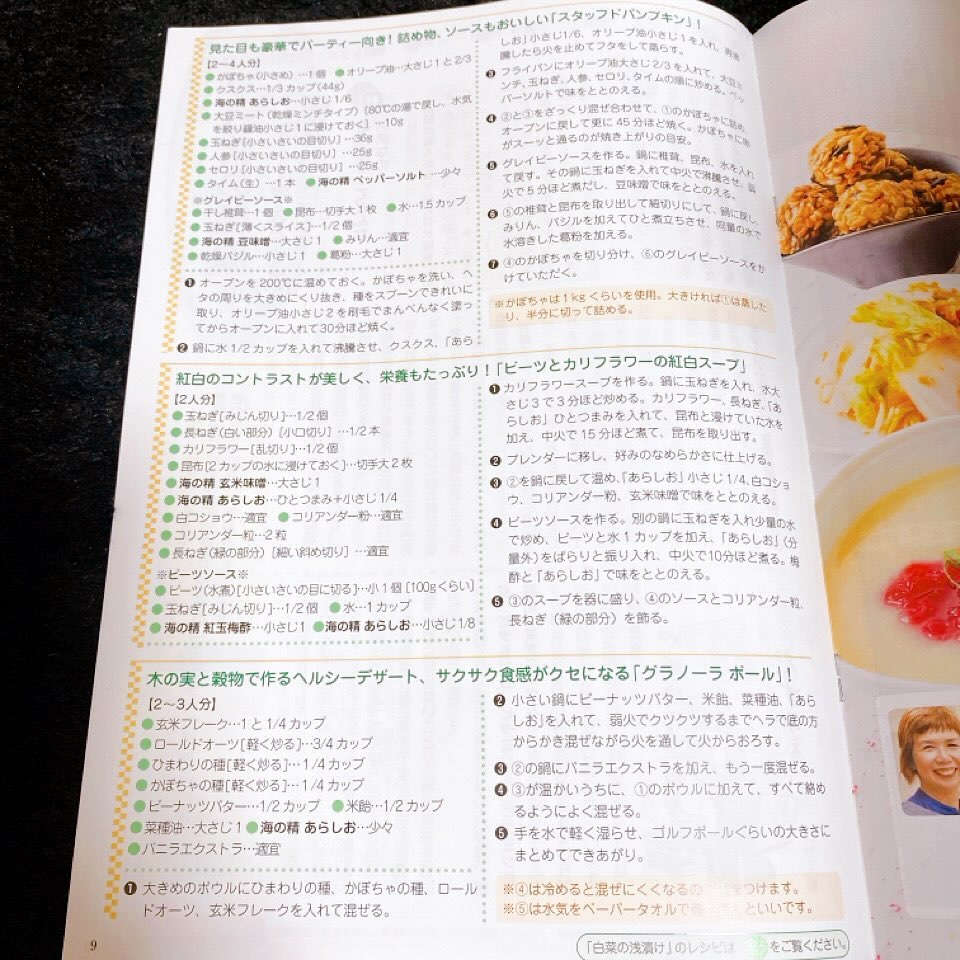 見た目も豪華でパーティー向き！詰め物、ソースもおいしい「スタッフドパンプキン」！
【2～4人分】
●かぼちゃ（小さめ）…1個 ●オリーブ油…大さじ1と2/3
●クスクス…1/3カップ（44g）
●海の精 あらしお…小さじ1/6
●大豆ミート（乾燥ミンチタイプ）［80℃の湯で戻し、水気
を絞り醤油小さじ1に浸けておく］…10g
●玉ねぎ［小さいさいの目切り］…36g
●人参［小さいさいの目切り］…25g
●セロリ［小さいさいの目切り］…25g
●タイム（生）…1本 ●海の精 ペッパーソルト…少々
※グレイビーソース※
●干し椎茸…1個 ●昆布…切手大1枚 ●水…1.5カップ
●玉ねぎ［薄くスライス］…1/2個
●海の精 豆味噌…大さじ1 ●みりん…適宜
●乾燥バジル…小さじ1 ●葛粉…大さじ1
❶オーブンを200℃に温めておく。かぼちゃを洗い、ヘ
タの周りを大きめにくり抜き、種をスプーンできれいに
取り、オリーブ油小さじ2を刷毛でまんべんなく塗っ
てからオーブンに入れて30分ほど焼く。
❷鍋に水1/2カップを入れて沸騰させ、クスクス、「あら
しお」小さじ1/6、オリーブ油小さじ1を入れ、再沸
騰したら火を止めてフタをして蒸らす。
❸フライパンにオリーブ油大さじ2/3を入れて、大豆ミ
ンチ、玉ねぎ、人参、セロリ、タイムの順に炒める。ペッ
パーソルトで味をととのえる。
❹②と③をざっくり混ぜ合わせて、①のかぼちゃに詰め、
オーブンに戻して更に45分ほど焼く。かぼちゃに
がスーッと通るのが焼き上がりの目安。
❺グレイビーソースを作る。鍋に椎茸、昆布、水を入れ
て戻す。その鍋に玉ねぎを入れて中火で沸騰させ、弱
火で5分ほど煮だし、豆味噌で味をととのえる。
❻⑤の椎茸と昆布を取り出して細切りにして、鍋に戻し、
みりん、バジルを加えてひと煮立ちさせ、同量の水で
水溶きした葛粉を加える。
❼④のかぼちゃを切り分け、⑥のグレイビーソースをか
けていただく。
※かぼちゃは1kgくらいを使用。大きければ①は蒸した
り、半分に切って詰める。
紅白のコントラストが美しく、栄養もたっぷり！「ビーツとカリフラワーの紅白スープ」
【2人分】
●玉ねぎ［みじん切り］…1/2個
●長ねぎ（白い部分）［小口切り］…1/2本
●カリフラワー［乱切り］…1/2個
●昆布［2カップの水に浸けておく］…切手大2枚
●海の精 玄米味噌…大さじ1
●海の精 あらしお…ひとつまみ＋小さじ1/4
●白コショウ…適宜 ●コリアンダー粉…適宜
●コリアンダー粒…2粒
●長ねぎ（緑の部分）［細い斜め切り］…適宜
※ビーツソース※
●ビーツ（水煮）［小さいさいの目に切る］…小1個［100gくらい］
●玉ねぎ［みじん切り］…1/2個 ●水…1カップ
●海の精 紅玉梅酢…小さじ1 ●海の精 あらしお…小さじ1/8
❶カリフラワースープを作る。鍋に玉ねぎを入れ、水大
さじ3で3分ほど炒める。カリフラワー、長ねぎ、「あ
らしお」ひとつまみを入れて、昆布と浸けていた水を
加え、中火で15分ほど煮て、昆布を取り出す。
❷ブレンダーに移し、好みのなめらかさに仕上げる。
❸②を鍋に戻して温め、「あらしお」小さじ1/4、白コショ
ウ、コリアンダー粉、玄米味噌で味をととのえる。
❹ビーツソースを作る。別の鍋に玉ねぎを入れ少量の水
で炒め、ビーツと水1カップを加え、「あらしお」（分
量外）をぱらりと振り入れ、中火で10分ほど煮る。梅
酢と「あらしお」で味をととのえる。
❺③のスープを器に盛り、④のソースとコリアンダー粒、
長ねぎ（緑の部分）を飾る。
木の実と穀物で作るヘルシーデザート、サクサク食感がクセになる「グラノーラ ボール」！
【2～3人分】
●玄米フレーク…1と1/4カップ
●ロールドオーツ［軽く炒る］…3/4カップ
●ひまわりの種［軽く炒る］…1/4カップ
●かぼちゃの種［軽く炒る］…1/4カップ
●ピーナッツバター…1/2カップ ●米飴…1/2カップ
●菜種油…大さじ1 ●海の精 あらしお…少々
●バニラエクストラ…適宜
❶大きめのボウルにひまわりの種、かぼちゃの種、ロール
ドオーツ、玄米フレークを入れて混ぜる。
❷小さい鍋にピーナッツバター、米飴、菜種油、「あら
しお」を入れて、弱火でクツクツするまでヘラで底の方
からかき混ぜながら火を通して火からおろす。
❸②の鍋にバニラエクストラを加え、もう一度混ぜる。
❹③が温かいうちに、①のボウルに加えて、すべて絡め
るようによく混ぜる。
❺手を水で軽く湿らせ、ゴルフボールぐらいの大きさに
まとめてできあがり。
※④は冷めると混ぜにくくなるの をつけます。
※⑤は水気をペーパータオルで いいです。
9
「白菜の浅漬け」のレシピは をご覧ください。